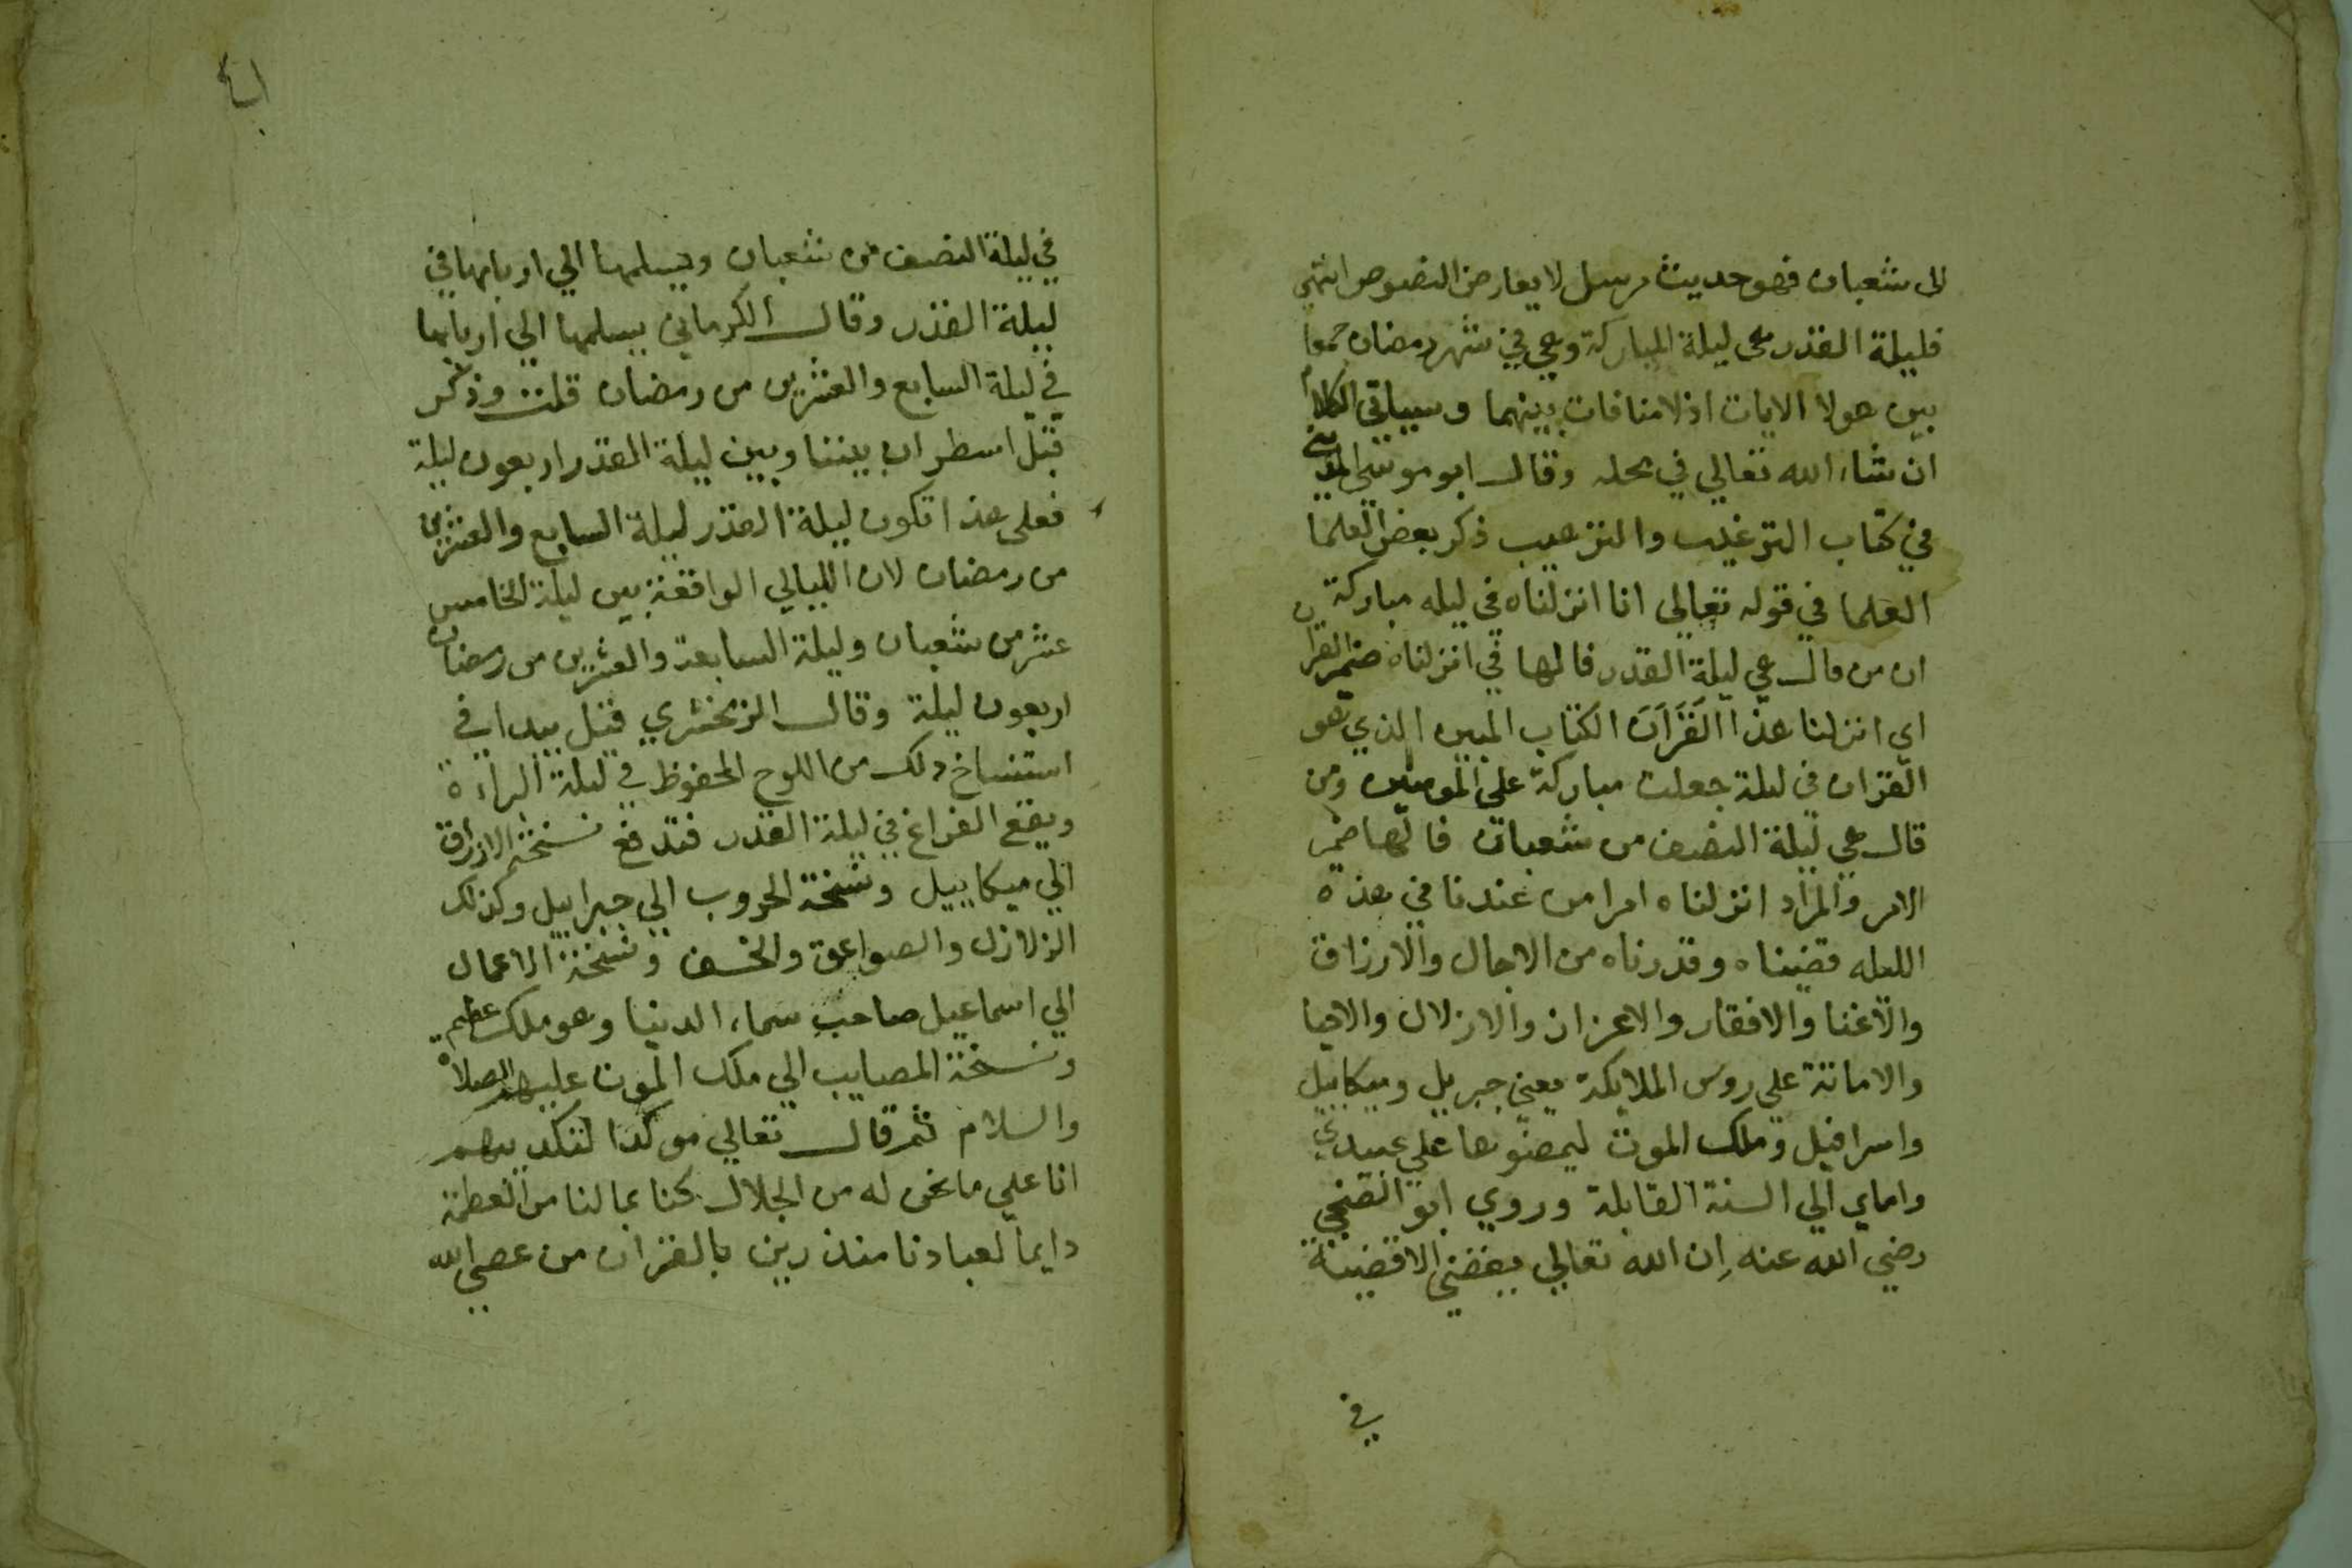 الى شعبان فهو حديث مرسل لا يعارض النصوص انتهى
فليلة القدر هى ليلة المباركة وهي في شهر رمضان جمعا
بين هولا الايات اذ لا منافات بينهما وسياتي الكلام
ان شاء الله تعالي في محله وقال ابو موسى المديني
في كتاب الترغيب والترهيب ذكر بعض العلما
العلما في قوله تعالى انا انزلناه في ليله مباركة
ان من قال هي ليلة القدر فالها في انزلناه ضمير القران
اي انزلنا هذا القَرَآنَ الكتاب المبين الذي هو
القران في ليلة جعلت مباركة على المومنين ومن
قال هي ليلة النصف من شعبان فالها ضمير
الامر والمراد انزلناه امرا من عندنا في هذه
الليله قضيناه وقدرناه من الاجال والارزاق
والاغنا والافقار والاعزاز والاذلال والاحيا
والاماتة على روس الملايكة يعني جبريل وميكاييل
واسرافيل وملك الموت ليمضوها علي عبيدي
واماي الي السنة القابلة وروي ابو الضحي
رضي الله عنه اِن الله تعالي يقضي الاقضية
في
في ليلة النصف من شعبان ويسلمها الي اربابها في
ليلة القدر وقال الكرماني يسلمها الي اربابها
في ليلة السابع والعشرين من رمضان قلت وذكر
قبل اسطر ان بيننا وبين ليلة القدر اربعون ليلة
فعلى هذا تكون ليلة القدر ليلة السابع والعشرين
من رمضان لان الليالي الواقعة بين ليلة الخامس
عشر من شعبان وليلة السابعة والعشرين من رمضان
اربعون ليلة وقال الزمخشري قيل يبدا في
استنساخ ذلك من اللوح المحفوظ في ليلة البراءة
ويقع الفراغ في ليلة القدر فتدفع نسخة الارزاق
الي ميكاييل ونسخة الحروب الي جبراييل وكذلك
الزلازل والصواعق والخسف ونسخة الاعمال
الي اسماعيل صاحب سماء الدنيا وهو ملك عظيم
ونسخة المصايب الي ملك الموت عليهم الصلاة
والسلام ثم قال تعالي موكدا لتكذيبهم
انا علي ما نحن له من الجلال كنا بما لنا من العظمة
دايما لعبادنا منذرين بالقران من عصي الله